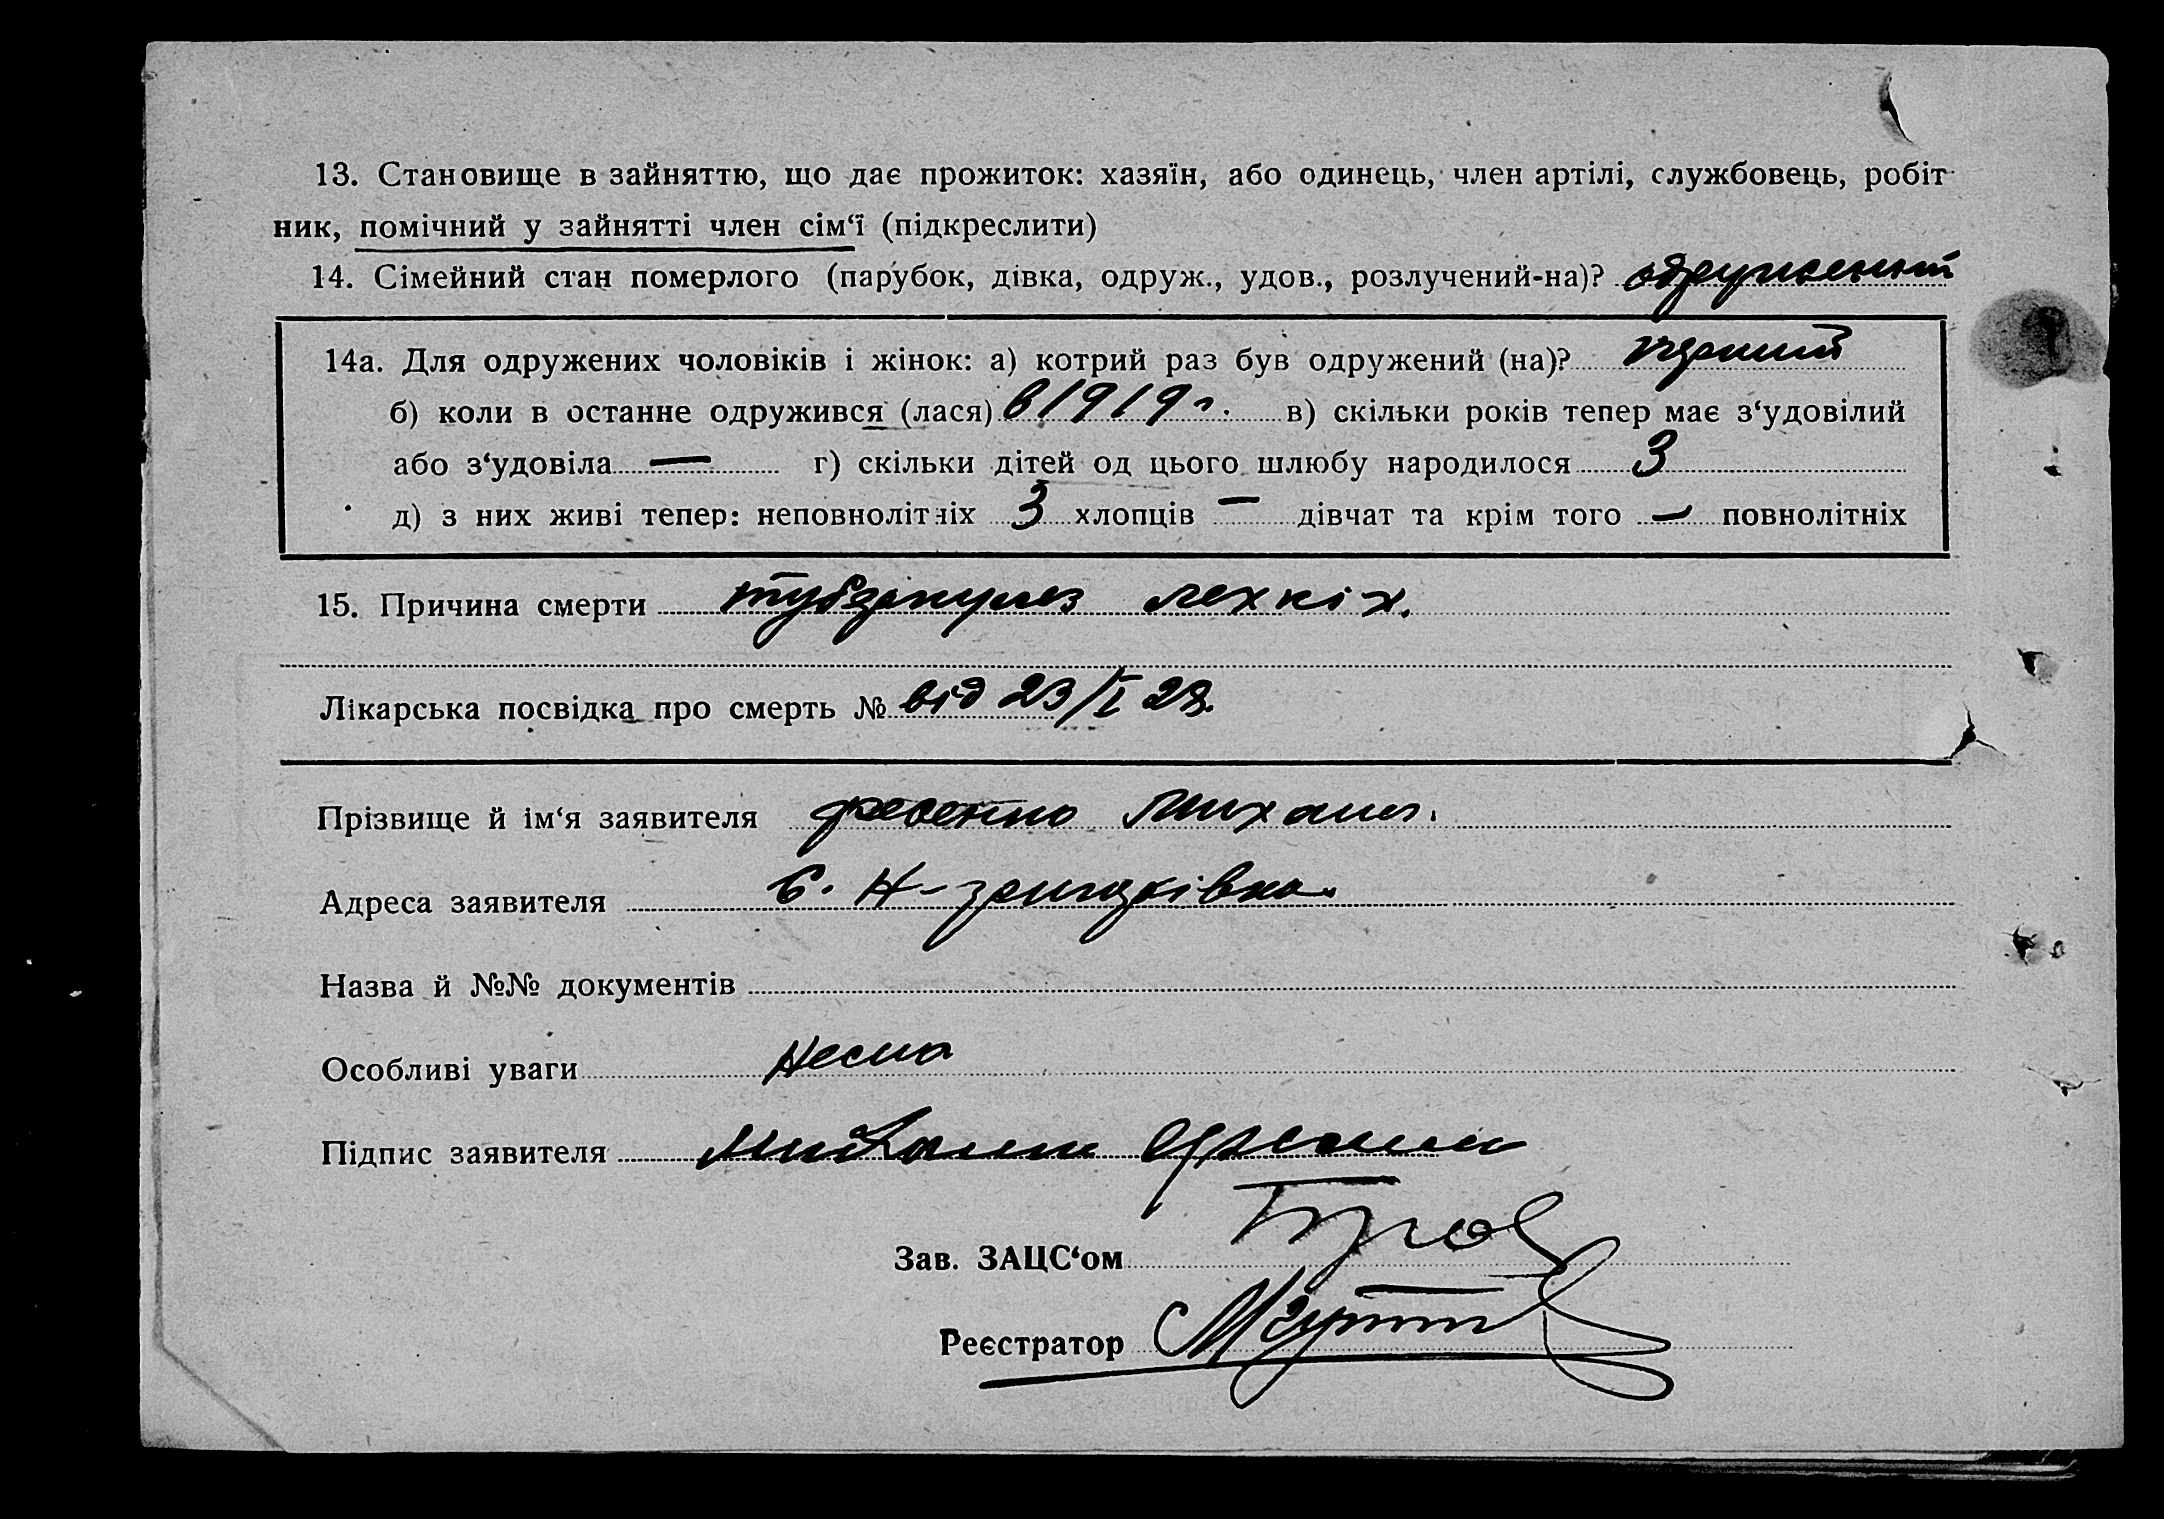 13. Становище в зайняттю, що дає прожиток: хазяїн, або одинець, член артілі, службовець, робіт
ник, помічний у зайнятті член сім‘ї (підкреслити)
14. Сімейний стан померлого (парубок, дівка, одруж., удов., розлучений-на)? одружений
14а. Для одружених чоловіків і жінок: а) котрий раз був одружений (на)? перший
б) коли в останнє одружився (лася) в 1919 г. в) скільки років тепер має з‘удовілий
або з‘удовіла — г) скільки дітей од цього шлюбу народилося 3
д) з них живі тепер: неповнолітніх 3 хлопців — дівчат та крім того — повнолітніх
15. Причина смерти легкіх.
Лікарська посвідка про смерть № від 23/I 28.
Прізвище й ім‘я заявителя Фесенко Михаил.
Адреса заявителя с. Н-
Назва й №№ документів
Особливі уваги Нема
Підпис заявителя
Зав. ЗАЦС‘ом
Реєстратор